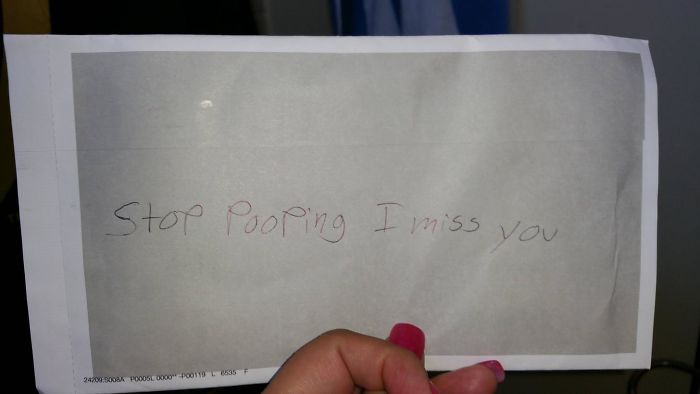 Stop Pooping I miss you
24209.S008A P0005L 0000** -P00119 L 6535 F